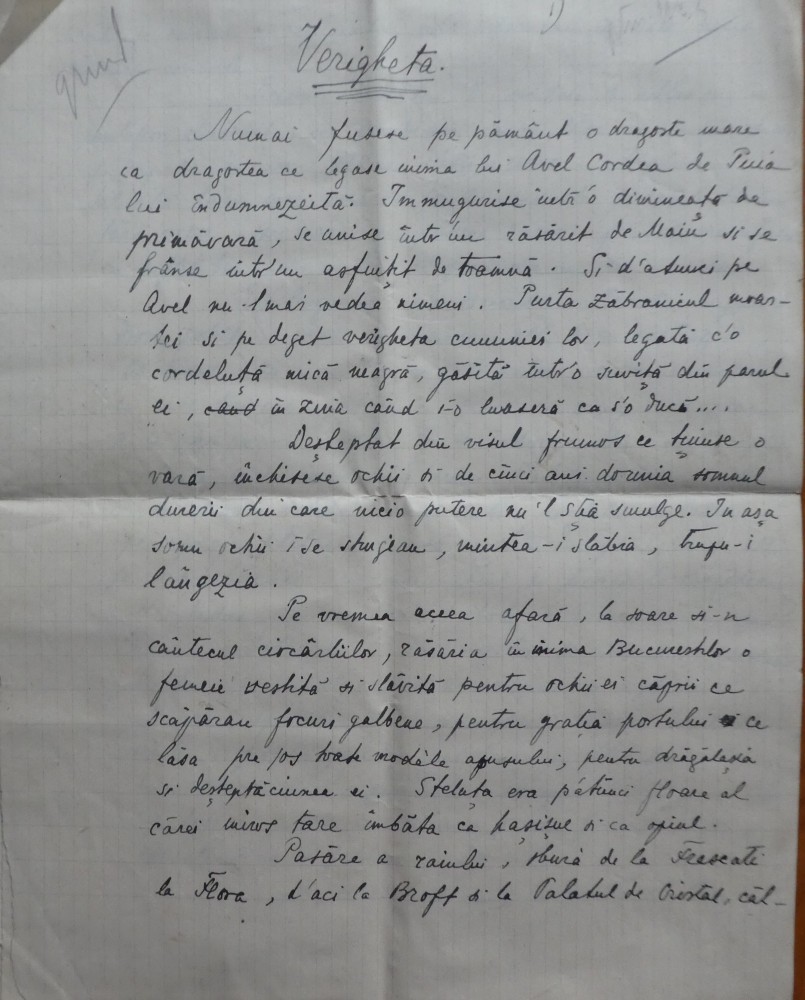 1)
Verigheta.
Numai fusese pe pământ o dragoste mare
ca dragostea ce legase inima lui Avel Cordea de Puia
lui îndumnezeită. Immugurise într'o dimineață de
primăvară, se unise într'un răsărit de Maiu si se
frânse într'un asfințit de toamnă. Si d'atunci pe
Avel nu-l mai vedea nimeni. Purta zăbranicul moar-
tei si pe deget verigheta cununiei lor, legată c'o
cordeluță mică neagră, găsită într'o șuviță din parul
ei, cand în ziua când i-o luaseră ca s'o ducă....
Deșteptat din visul frumos ce ținuse o
vară, închisese ochii si de cinci ani dormia somnul
durerii din care nicio putere nu'l știa smulge. In așa
somn ochii i se stingeau, mintea-i slăbia, trupu-i
lângezia.
Pe vremea aceea afară, la soare si-n
cântecul ciocârliilor, răsăria în inima Bucurestilor o
femeie vestită si slăvită pentru ochii ei căprii ce
scăpărau focuri galbene, pentru grația portului ce
lăsa pre jos toate modele apusului, pentru drăgălașia
si deșteptăciunea ei. Steluța era floare al
cărei miros tare îmbăta ca hașișul si ca opiul.
Pasăre a raiului, sbură de la Frascati
la Flora, d'aci la Broft si la Palatul de Cristal, căl-